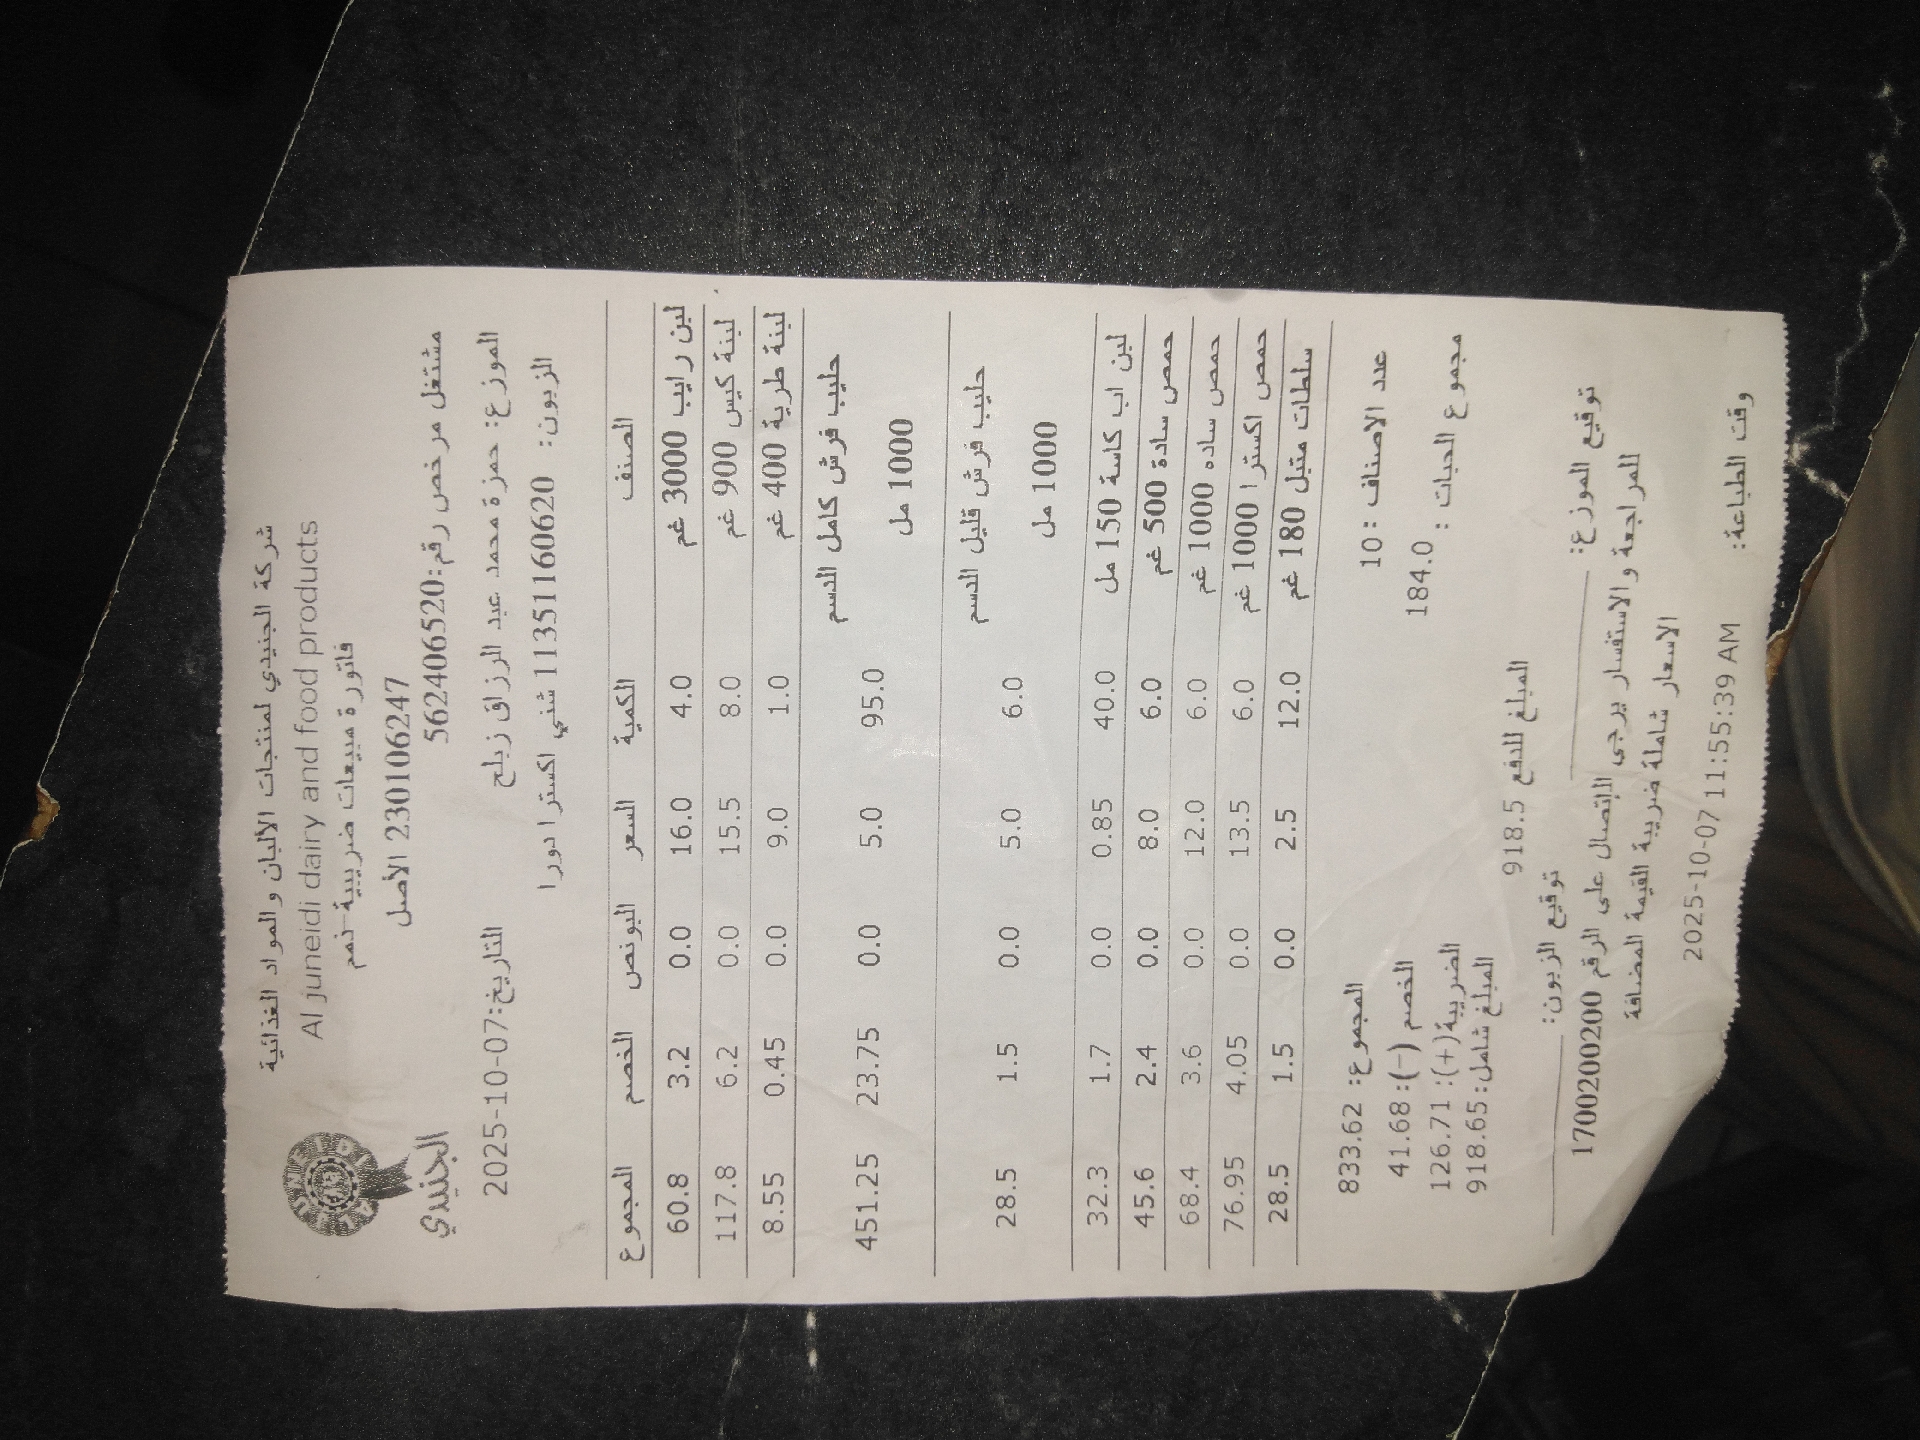 شركة الجنيدي لمنتجات الألبان والمواد الغذائية
Al juneidi dairy and food products
فاتورة مبيعات ضريبية-ذمم
230106247 الأصل
مشتغل مرخص رقم:562406520
AL JUNEIDI
الجنيدي
الموزع: حمزة محمد عبد الرزاق زبلح التاريخ:2025-10-07
الزبون: 1135116062​0 شني اكسترا دورا
الصنف الكمية السعر البونص الخصم المجموع
لبن رايب 3000 غم 4.0 16.0 0.0 3.2 60.8
لبنة كيس 900 غم 8.0 15.5 0.0 6.2 117.8
لبنة طرية 400 غم 1.0 9.0 0.0 0.45 8.55
حليب فرش كامل الدسم 95.0 5.0 0.0 23.75 451.25
1000 مل
حليب فرش قليل الدسم 6.0 5.0 0.0 1.5 28.5
1000 مل
لبن اب كاسة 150 مل 40.0 0.85 0.0 1.7 32.3
حمص سادة 500 غم 6.0 8.0 0.0 2.4 45.6
حمص ساده 1000 غم 6.0 12.0 0.0 3.6 68.4
حمص اكسترا 1000 غم 6.0 13.5 0.0 4.05 76.95
سلطات متبل 180 غم 12.0 2.5 0.0 1.5 28.5
عدد الاصناف : 10 المجموع: 833.62
مجموع الحبات : 184.0 الخصم (-): 41.68
الضريبة(+): 126.71
المبلغ شامل: 918.65
المبلغ للدفع 918.5
توقيع الموزع: توقيع الزبون:
للمراجعة والاستفسار يرجى الإتصال على الرقم 1700200200
الاسعار شاملة ضريبة القيمة المضافة
وقت الطباعة: 2025-10-07 11:55:39 AM